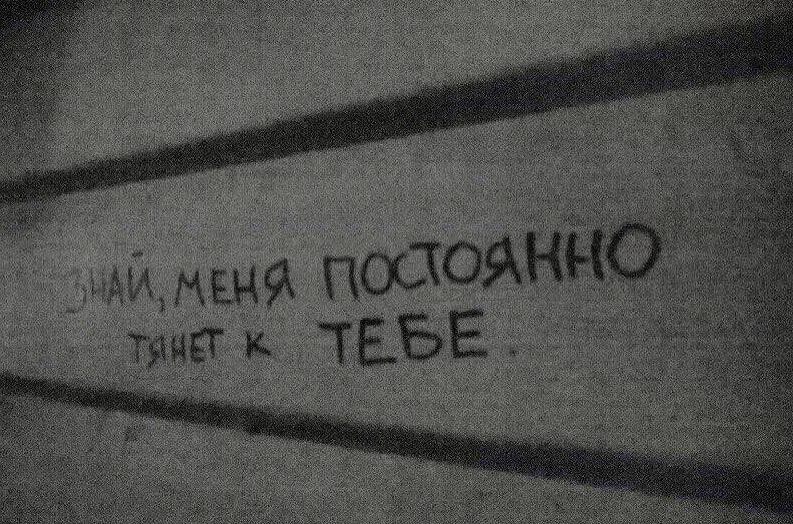 ЗНАЙ, МЕНЯ ПОСТОЯННО
ТЯНЕТ К ТЕБЕ.